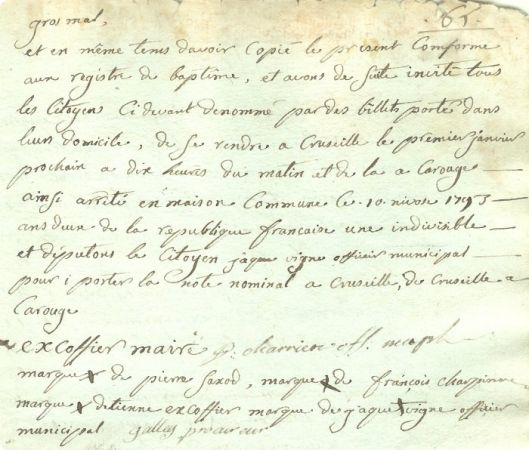 61.
gros mal,
et en même tems davoir Copié le present Comforme
aux registre de baptime, et avons de suite invité tous
les Citoyens Ci devant denommé par des billets porté dans
leurs domicile, de se rendre a Cruseille le premier janvier
prochain a dix heures du matin et de la a Carouge
ainsi arrêté en maison Commune ce 10 nivose 1793
ans deux de la republique francaise une indivisible
et députons le Citoyen jaque vigne officier municipal
pour i porter la note nominal a Cruseille, de Cruseille a
Carouge
excoffier maire p. charriere off.
marque x de pierre saxod, marque x de françois charpinne
marque x detienne excoffier marque de jaque x vigne officier
municipal gallay procureur